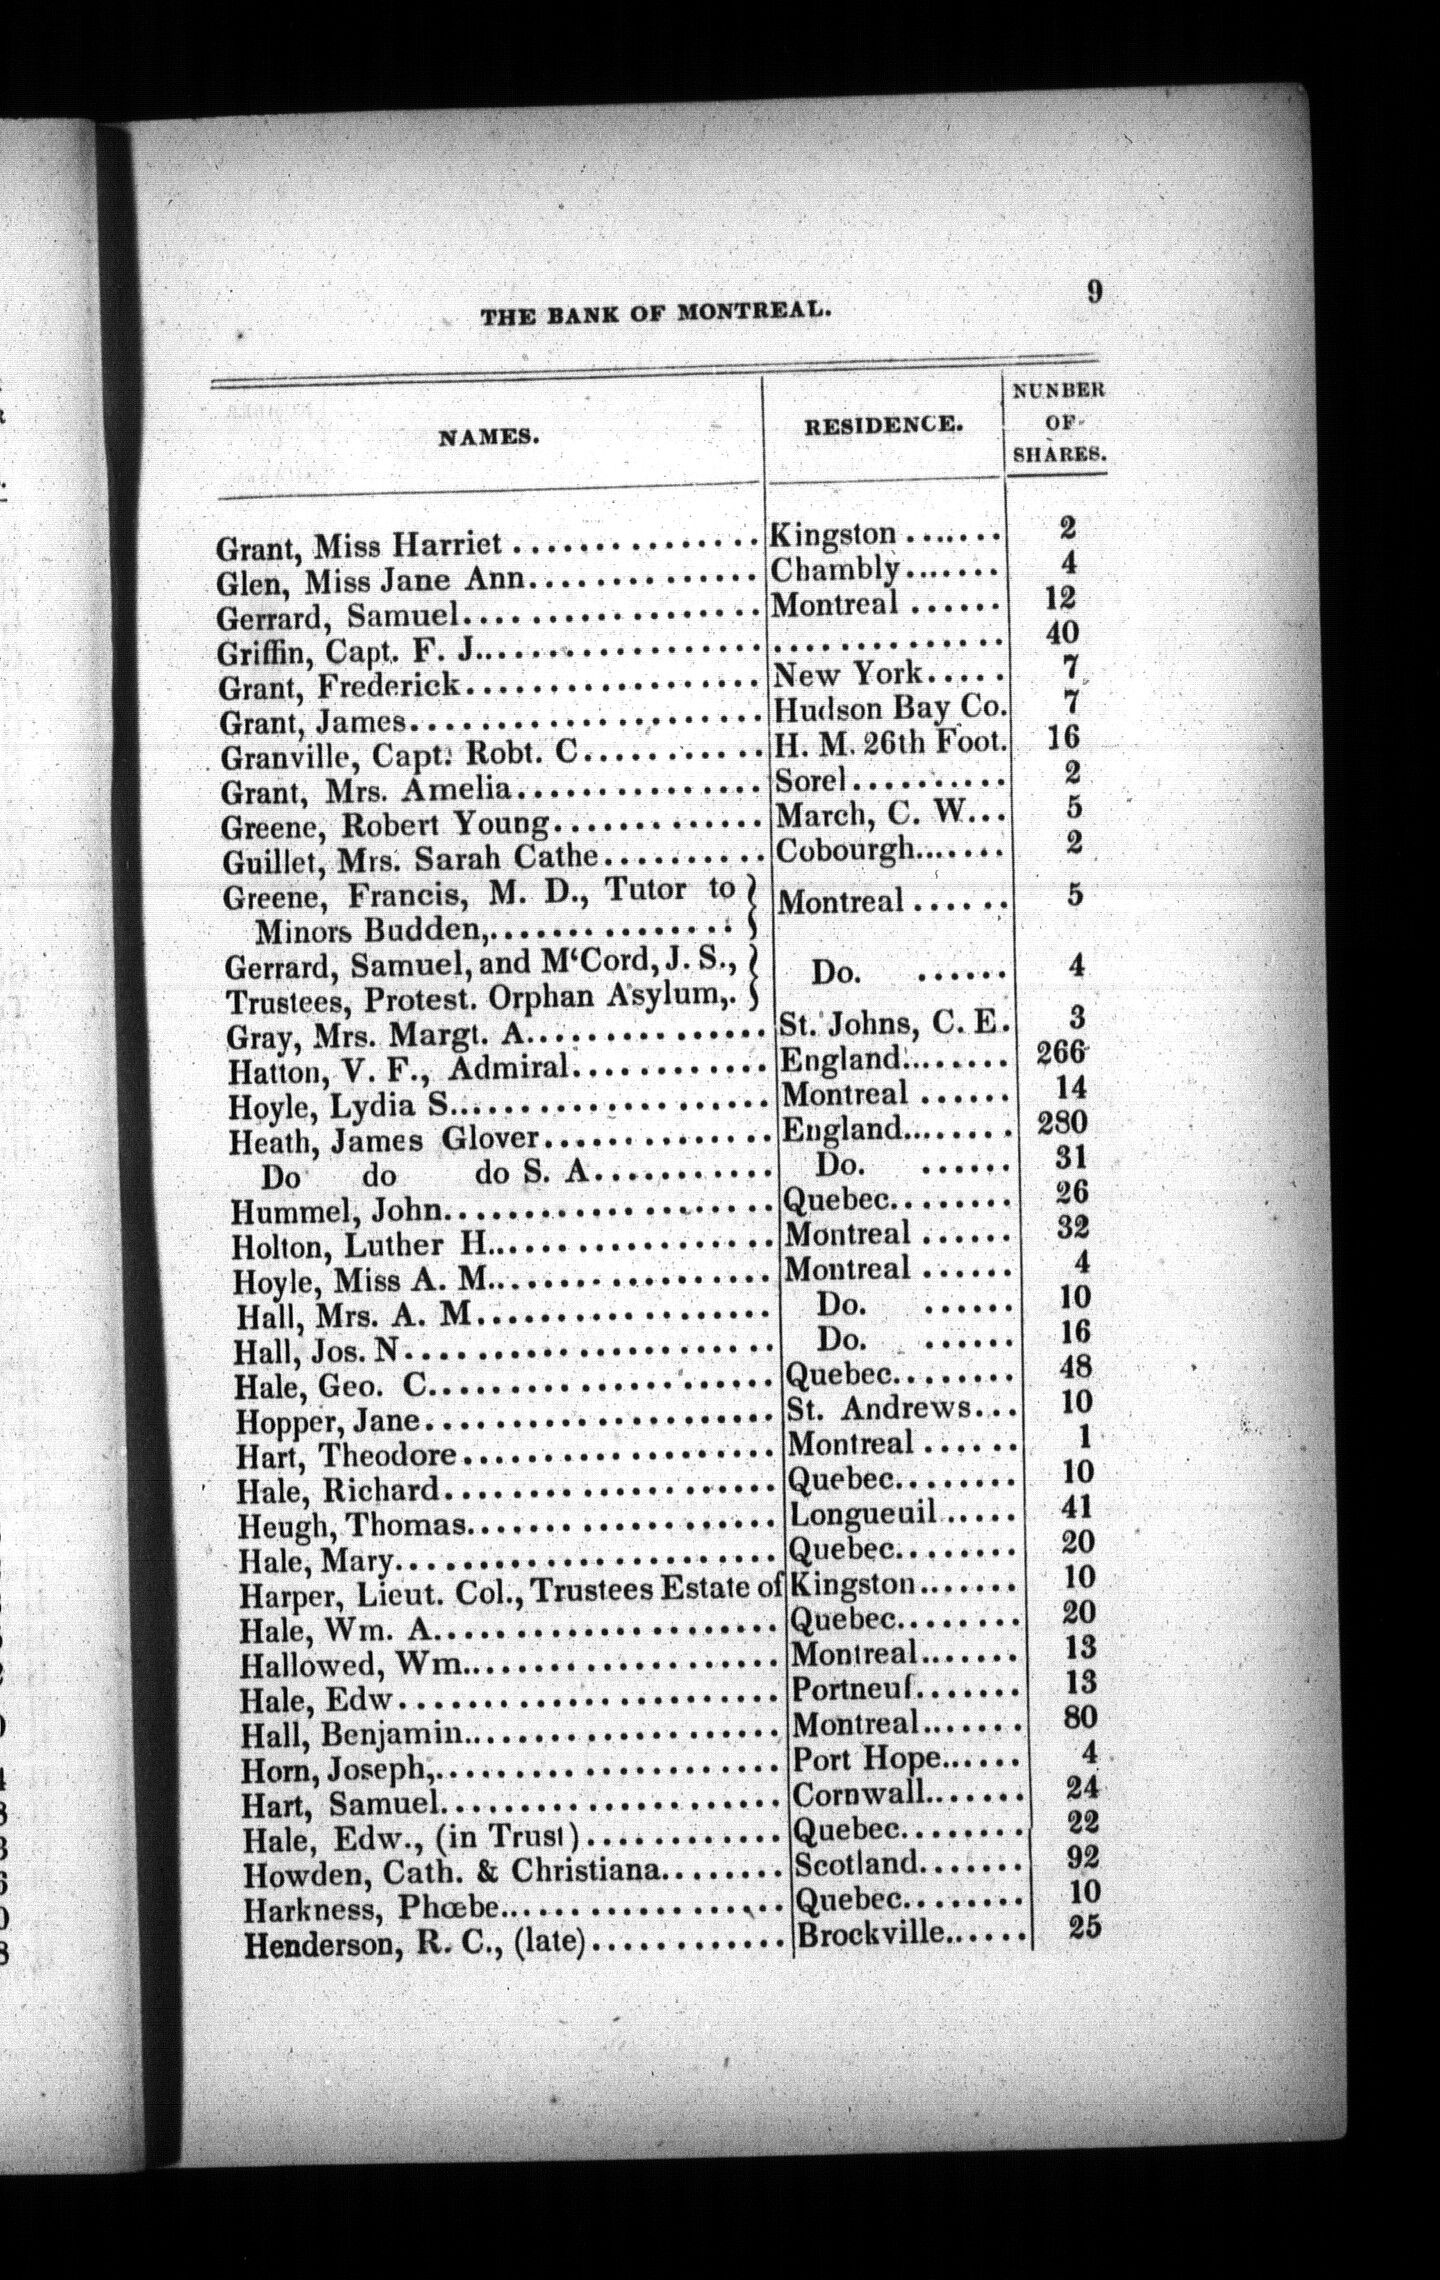 THE BANK OF MONTREAL. 9
NAMES. RESIDENCE. NUNBER OF SHARES.
Grant, Miss Harriet ............... Kingston ....... 2
Glen, Miss Jane Ann.............. Chambly....... 4
Gerrard, Samuel.................. Montreal ...... 12
Griffin, Capt. F. J.................. .............. 40
Grant, Frederick.................. New York..... 7
Grant, James..................... Hudson Bay Co. 7
Granville, Capt. Robt. C........... H. M. 26th Foot. 16
Grant, Mrs. Amelia............... Sorel.......... 2
Greene, Robert Young............. March, C. W... 5
Guillet, Mrs. Sarah Cathe.......... Cobourgh....... 2
Greene, Francis, M. D., Tutor to } Montreal ...... 5
Minors Budden,............... }
Gerrard, Samuel, and M‘Cord, J. S., } Do. ...... 4
Trustees, Protest. Orphan Asylum,. }
Gray, Mrs. Margt. A............... St. Johns, C. E. 3
Hatton, V. F., Admiral............ England........ 266
Hoyle, Lydia S.................... Montreal ...... 14
Heath, James Glover.............. England........ 280
Do do do S. A........... Do. ...... 31
Hummel, John................... Quebec........ 26
Holton, Luther H................. Montreal ...... 32
Hoyle, Miss A. M................. Montreal ...... 4
Hall, Mrs. A. M.................. Do. ...... 10
Hall, Jos. N...................... Do. ...... 16
Hale, Geo. C..................... Quebec........ 48
Hopper, Jane..................... St. Andrews... 10
Hart, Theodore................... Montreal ...... 1
Hale, Richard.................... Quebec........ 10
Heugh, Thomas................... Longueuil..... 41
Hale, Mary....................... Quebec........ 20
Harper, Lieut. Col., Trustees Estate of Kingston....... 10
Hale, Wm. A..................... Quebec........ 20
Hallowed, Wm................... Montreal....... 13
Hale, Edw....................... Portneuf....... 13
Hall, Benjamin................... Montreal....... 80
Horn, Joseph,..................... Port Hope...... 4
Hart, Samuel..................... Cornwall....... 24
Hale, Edw., (in Trust)............ Quebec........ 22
Howden, Cath. & Christiana........ Scotland....... 92
Harkness, Phœbe................. Quebec........ 10
Henderson, R. C., (late)............ Brockville...... 25